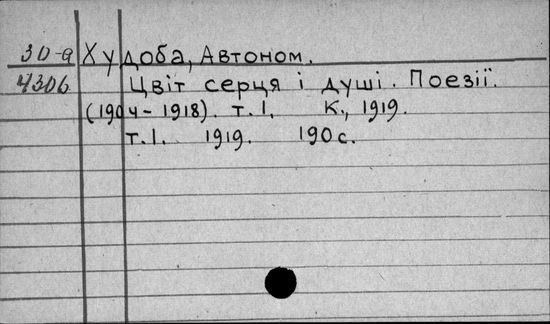 30-а Худоба, Автоном.
4306 Цвіт серця і душі. Поезії.
(1904-1918). т. I. К., 1919.
т. I. 1919. 190 с.